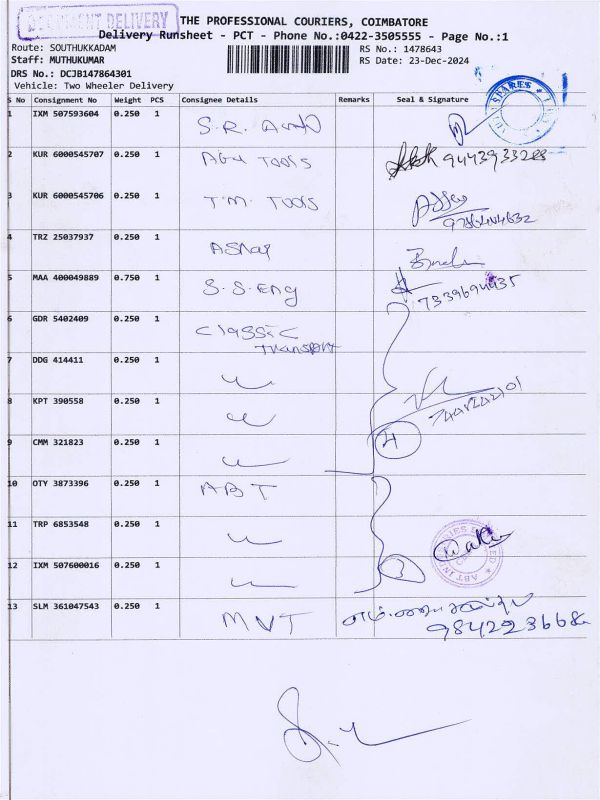 DOCUMENT DELIVERY
THE PROFESSIONAL COURIERS, COIMBATORE
Delivery Runsheet - PCT - Phone No.:0422-3505555 - Page No.:1
Route: SOUTHUKKADAM
RS No.: 1478643
Staff: MUTHUKUMAR
RS Date: 23-Dec-2024
DRS No.: DCJB147864301
Vehicle: Two Wheeler Delivery
S No Consignment No Weight PCS Consignee Details Remarks Seal & Signature
1 IXM 507593604 0.250 1 S.R.
SPARES
2 KUR 6000545707 0.250 1 AGH TOOLS 9443933288
3 KUR 6000545706 0.250 1 T.M. TOOLS
4 TRZ 25037937 0.250 1
5 MAA 400049889 0.750 1 S.S.Eng 7339694435
6 GDR 5402409 0.250 1 Classic
Transport
7 DDG 414411 0.250 1
8 KPT 390558 0.250 1
9 CMM 321823 0.250 1 4
10 OTY 3873396 0.250 1 ABT
11 TRP 6853548 0.250 1
12 IXM 507600016 0.250 1 3
13 SLM 361047543 0.250 1 MVT